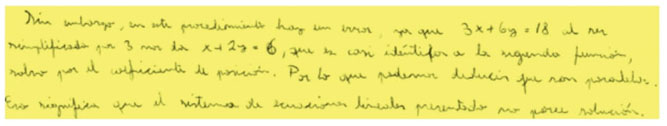 Sin embargo, en este procedimiento hay un error, ya que 3x+6y=18 al ser
simplificado por 3 nos da x+2y=6, que es casi idéntifo a la segunda función,
salvo por el coeficiente de posición. Por lo que podemos deducir que son paralelas.
Eso significa que el sistema de ecuaciones lineales presentado no posee solución.